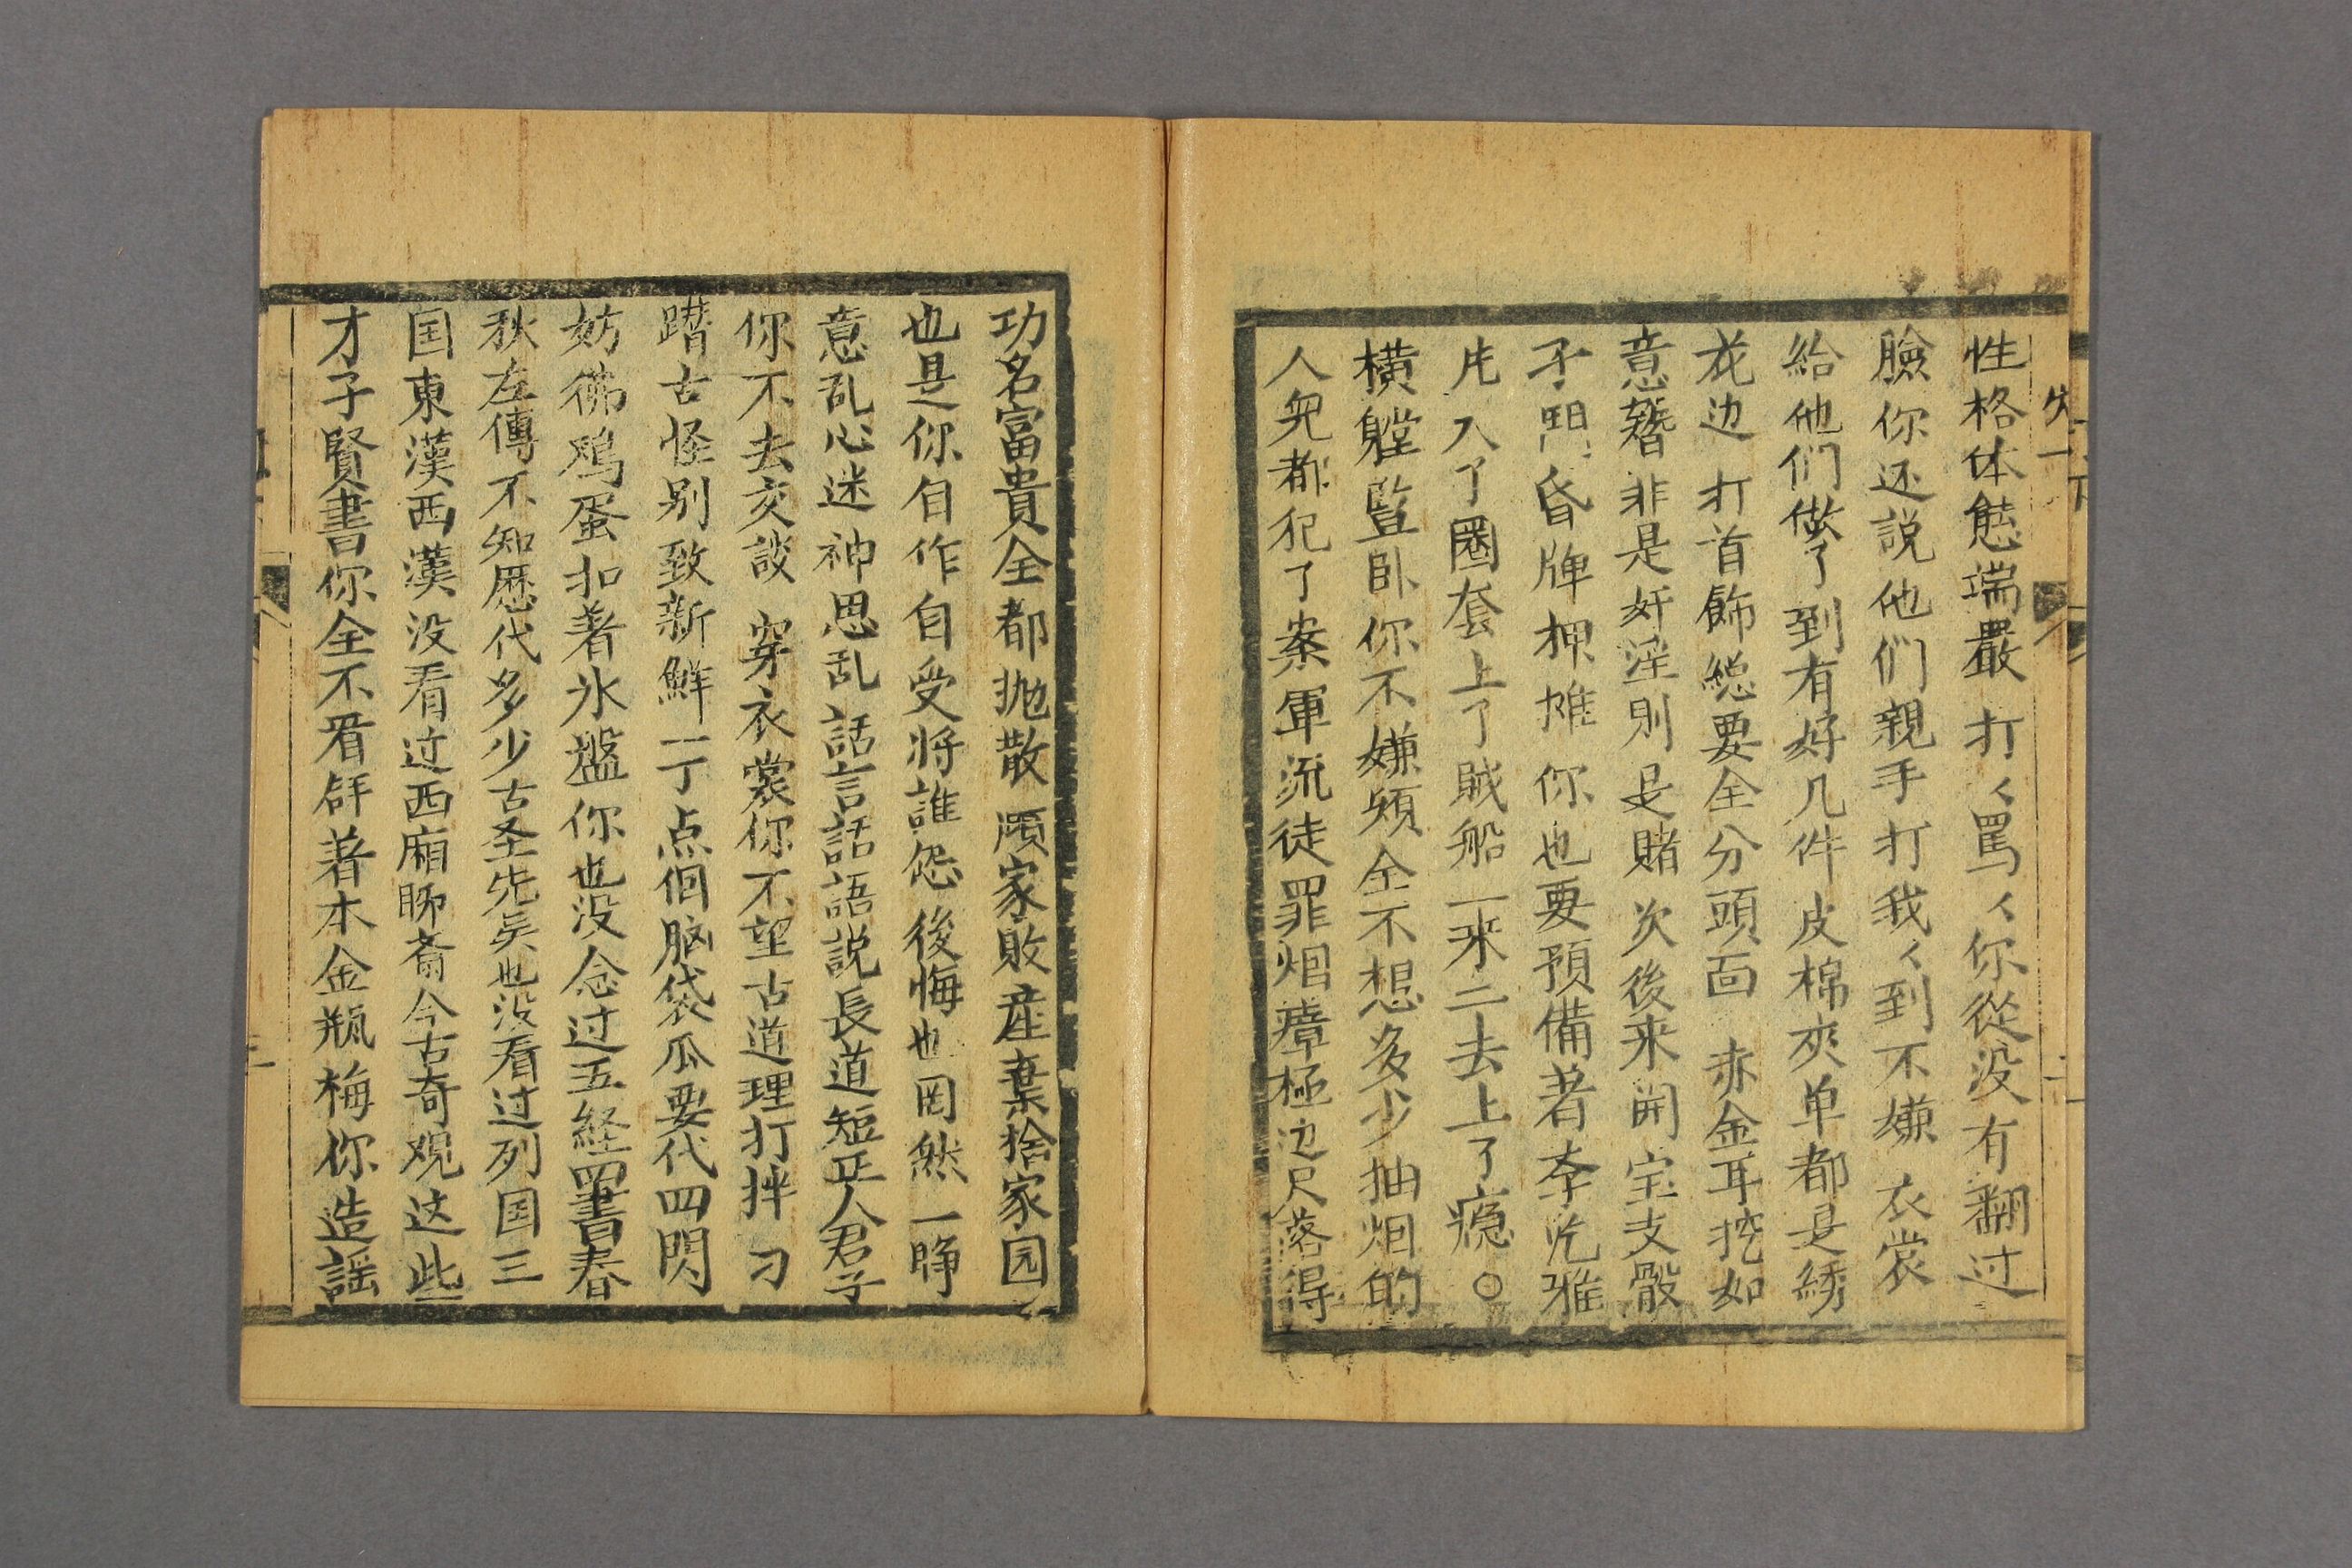 性格体态端嚴 打〻罵〻你從没有翻过
臉你还説他们親手打我〻到不嫌 衣裳
給他们做了到有好几件皮棉夾单都是綉
花边 打首飾総要全分頭面 赤金耳挖如
意簪 非是奸淫則是賭 次後来開宝支骰
子 昏牌押摊 你也要預備著李 雅
片入了圈套上了賊船一来二去上了癮○
横躺竖卧你不嫌煩全不想多少抽烟的
人免都犯了案軍流徒罪烟瘴極边尺落得
功名富貴全都抛散 家敗産棄捨家园
也是你自作自受将誰怨後悔也罔然一睁
意乱心迷神思乱 話言話語説長道短正人君子
你不去交談 穿衣裳你不望古道理打拌 刁
蹅古怪别致新鮮一丁点個脑袋瓜要代四閃
妨彿鸡蛋扣著氷盤你也没念过五経四書春
秋左傳不知歴代多少古圣先矣也没看过列国三
国東漢西漢没看过西廂聊斋今古奇观这些
才子賢書你全不看 著本金瓶梅你造謡